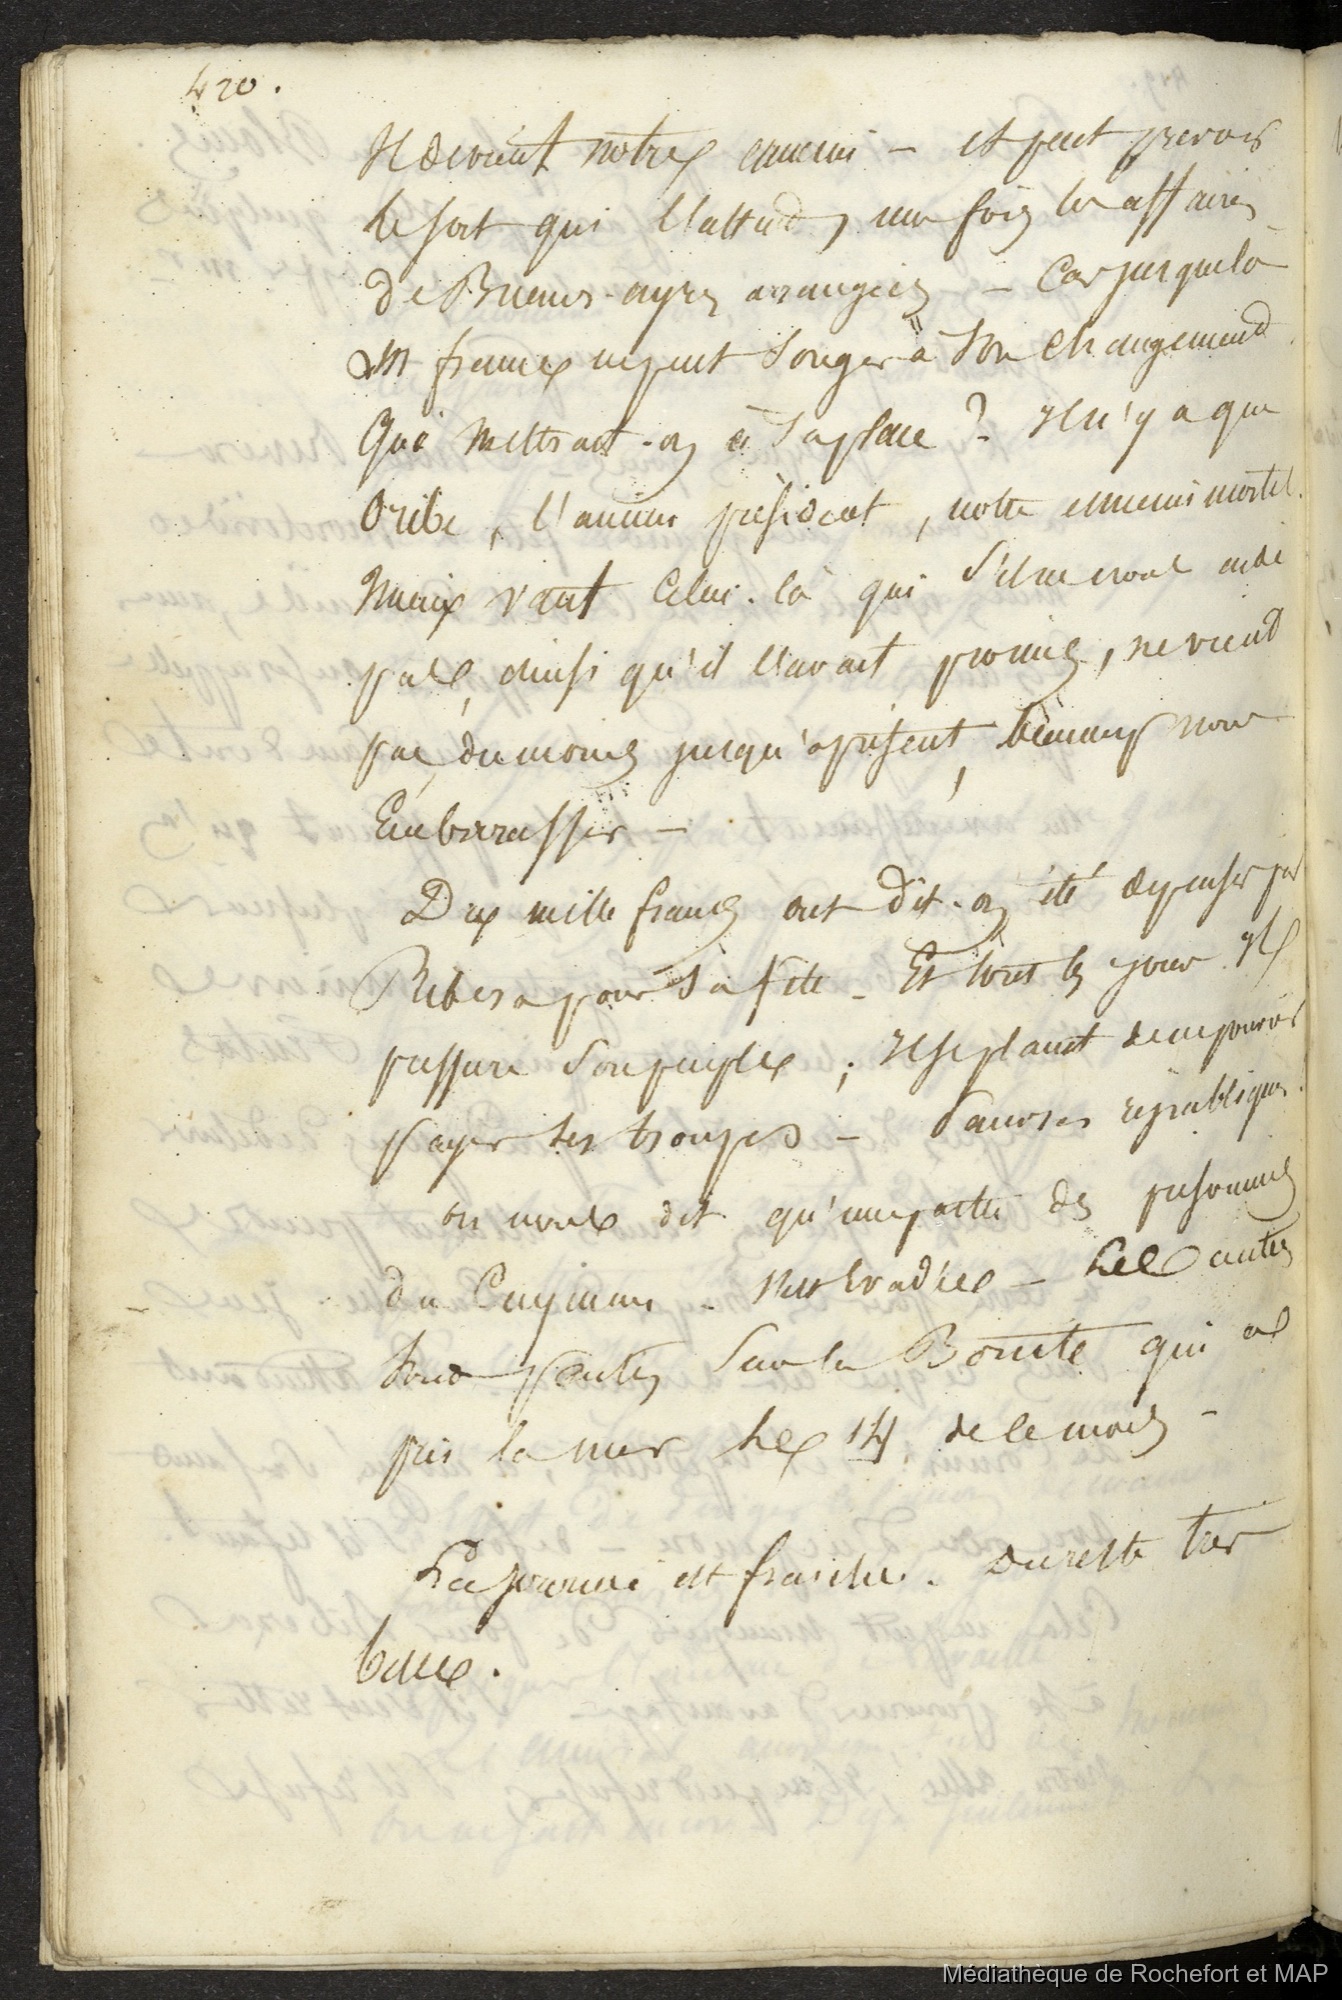 420.
Il devient notre ennemi – et peut prevoir
le sort qui l'attend, une fois les affaires
de Buenos-ayres arrangées – Car jusque là
la france ne peut songer à son changement
Qui mettrait-on à sa place ? Il n'y a que
Oribe, l'ancien président, notre ennemi mortel.
Mieux vaut celui-là qui s'il ne nous aide
pas, ainsi qu'il l'avait promis, ne vient
pas, du moins jusqu'à présent, beaucoup nous
Embarrasser –
Dix mille francs ont dit-on été depensés par
Ribera pour sa fête – Et tous les jours il
pressure son peuple ; Il se plaint de ne pouvoir
payer ses troupes – Pauvres républiques.
on nous dit qu'une partie des prisonniers
du – Les autres
sont partis sur la Bonite qui a
pris la mer le 14 de ce mois –
La journée est fraiche. Du reste très
belle.
Médiathèque de Rochefort et MAP